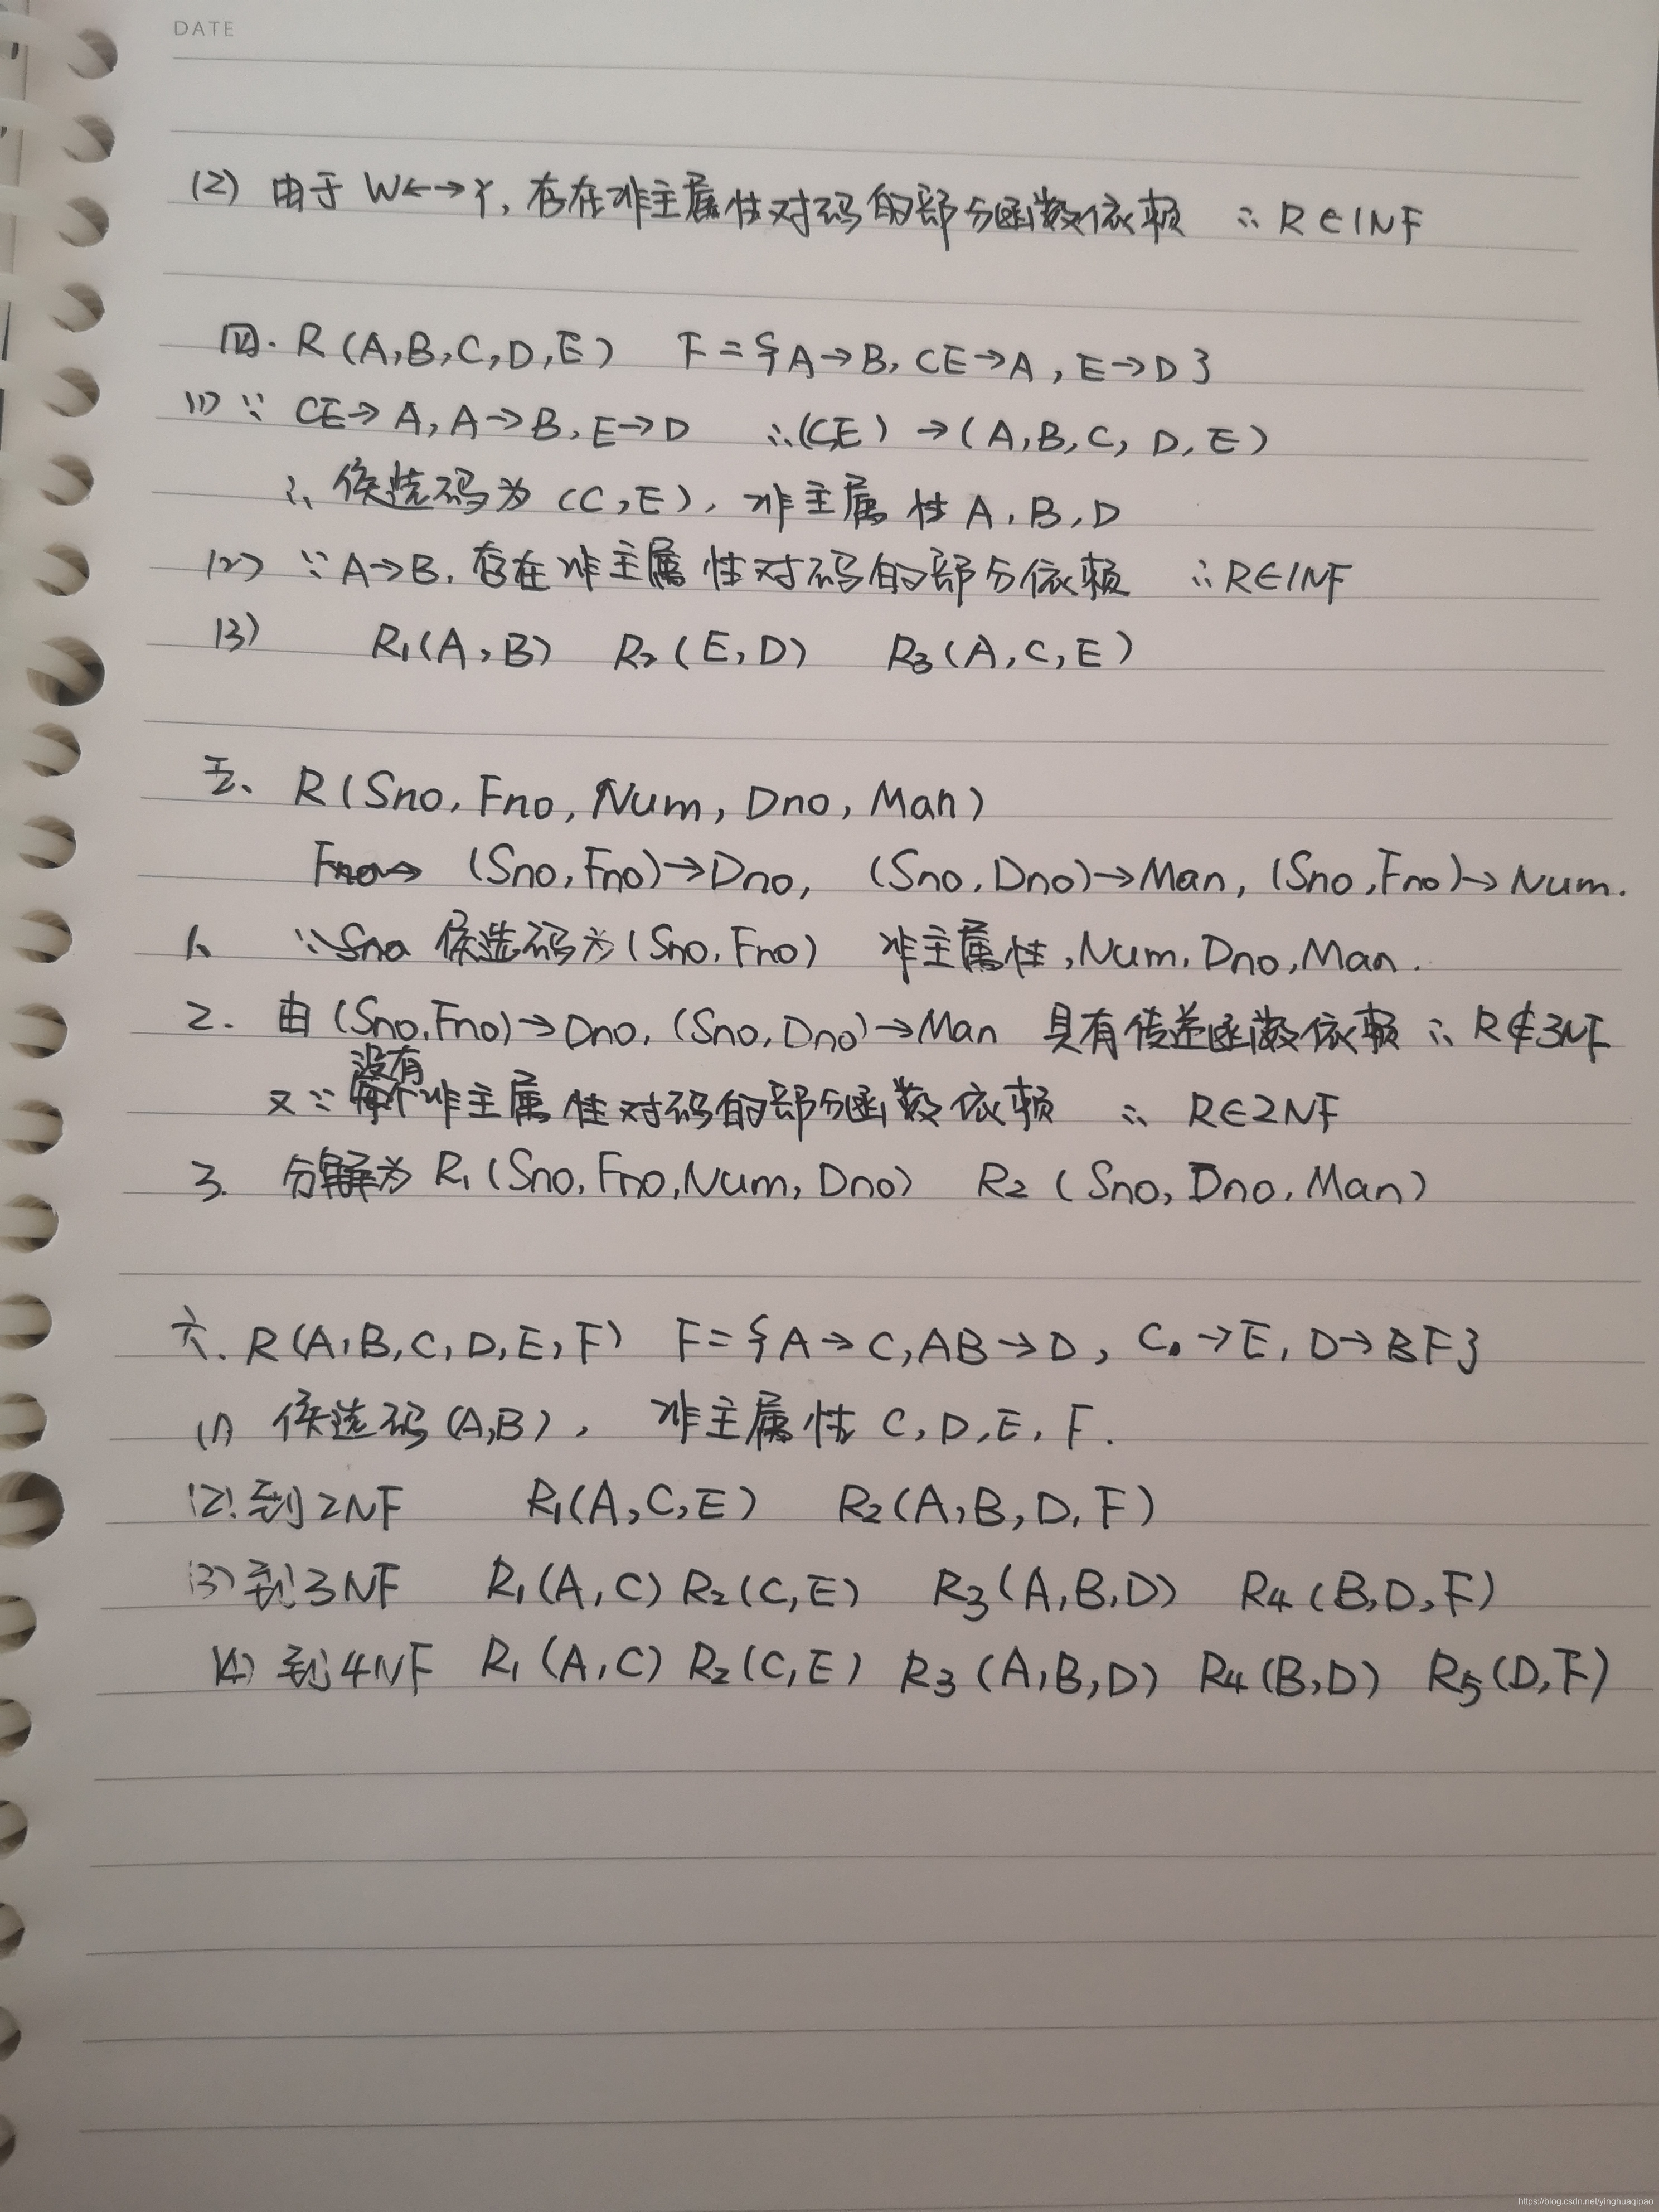 DATE
(2) 由于 W←→Y, 存在非主属性对码的部分函数依赖 ∴ R∈1NF
四. R(A,B,C,D,E) F={A→B, CE→A, E→D}
(1) ∵ CE→A, A→B, E→D ∴(CE)→(A,B,C,D,E)
∴ 候选码为(C,E), 非主属性 A,B,D
(2) ∵A→B, 存在非主属性对码的部分依赖 ∴R∈1NF
(3) R₁(A,B) R₂(E,D) R₃(A,C,E)
五、R(Sno, Fno, Num, Dno, Man)
(Sno,Fno)→Dno, (Sno,Dno)→Man, (Sno,Fno)→Num.
1、 ∵ 候选码为(Sno,Fno) 非主属性,Num,Dno,Man.
2. 由(Sno,Fno)→Dno, (Sno,Dno)→Man 具有传递函数依赖 ∴ R∉3NF
又∵ 没有非主属性对码的部分函数依赖 ∴ R∈2NF
3. 分解为 R₁(Sno,Fno,Num,Dno) R₂(Sno,Dno,Man)
六. R(A,B,C,D,E,F) F={A→C,AB→D, C→E, D→BF}
(1) 候选码(A,B), 非主属性 C,D,E,F.
(2).到2NF R₁(A,C,E) R₂(A,B,D,F)
(3)到3NF R₁(A,C) R₂(C,E) R₃(A,B,D) R₄(B,D,F)
(4) 到4NF R₁(A,C) R₂(C,E) R₃(A,B,D) R₄(B,D) R₅(D,F)
https://blog.csdn.net/yinghuaqipao